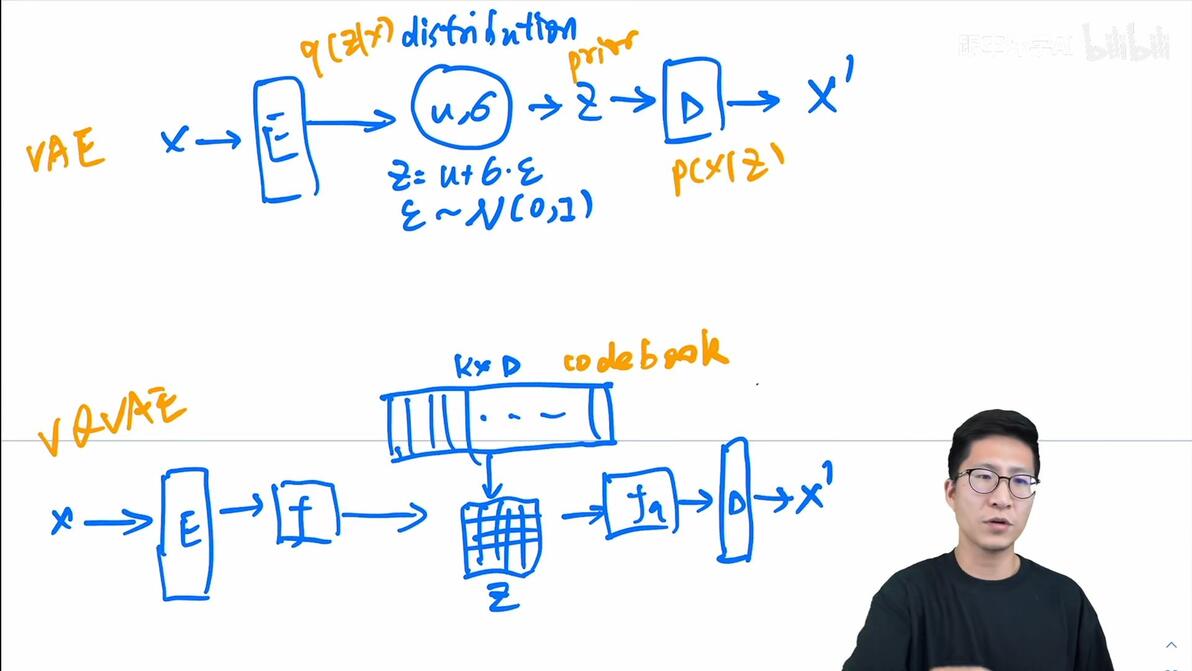 q(z|x) distribution
prior
VAE
x → E → u,σ → z → D → x'
z = u+σ·ε
p(x|z)
ε ~ N(0,1)
K×D codebook
VQVAE
x → E → f → fq → D → x'
z
bilibili